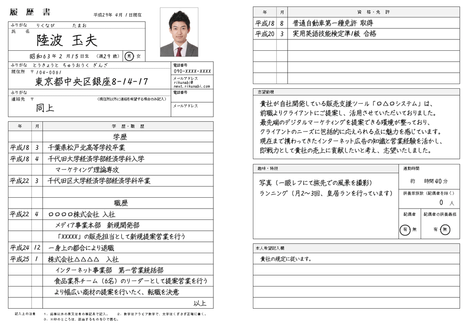 履歴書
平成29年4月1日現在
ふりがな りくなび たまお
氏名
陸波 玉夫
男
ふりがな
電話番号
現住所
090-XXXX-XXXX
メールアドレス
東京都中央区銀座8-14-17
ふりがな
電話番号
連絡先
同上
メールアドレス
年 月 学歴・職歴
学歴
平成18 3 千葉県松戸北高等学校卒業
平成18 4 千代田大学経済学部経済学科入学
マーケティング理論専攻
平成22 3 千代田大学経済学部経済学科卒業
職歴
平成22 4 〇〇〇〇株式会社 入社
メディア事業本部 新規開発部
「XXXXX」の販売担当として新規提案営業を行う
平成24 12 一身上の都合により退職
平成25 1 株式会社△△△△ 入社
インターネット事業部 第一営業統括部
食品業界チーム（6名）のリーダーとして提案営業を行う
より幅広い商材の提案を行いたく、転職を決意
以上
年 月 資格・免許
平成18 8 普通自動車第一種免許 取得
平成20 3 実用英語技能検定準1級 合格
志望動機
貴社が自社開発している販売支援ツール「〇△〇システム」は、
前職よりクライアントにご提案し、活用させていただいておりました。
最先端のデジタルマーケティングを提案できる環境が整っており、
クライアントのニーズに包括的に応えられる点に魅力を感じています。
現在まで携わってきたインターネット広告の知識と営業経験を活かし、
即戦力として貴社の売上に貢献したいと考え、志望いたします。
趣味・特技
通勤時間
写真（一眼レフにて旅先での風景を撮影）
約 時間40分
ランニング（月2〜3回、皇居ランを行っています）
0人
配偶者
有・無
有・無
本人希望記入欄
貴社の規定に従います。